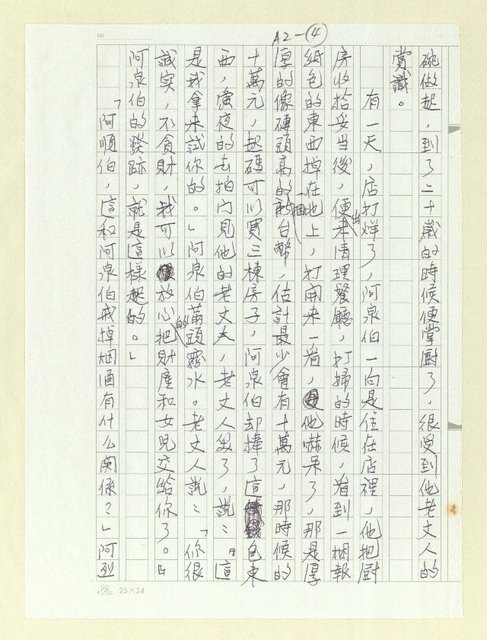 A2-④
碗做起，到了二十歲的時候便掌廚了，很受到他老丈人的
賞識。
有一天，店打烊了，阿泉伯一向是住在店裡，他把廚
房收拾妥当後，便出來清理餐廳，打掃的時候，看到一捆報
紙色的東西掉在地上，打開來一看，他嚇呆了，那是厚
厚的像磚頭高的一捆新台幣，估計最少會有十萬元，那時候的
十萬元，起碼可以買三棟房子，阿泉伯却捧了這包東
西，連夜的去拍门見他的老丈人，老丈人笑了，說：『這
是我拿來試你的。』阿泉伯滿頭的霧水。老丈人說：『你很
誠实，不貪財，我可以放心把財產和女兒交給你了。』
阿泉伯的發跡，就是這樣起的。」
「阿順伯，這和阿泉伯戒掉烟酒有什么関係？」阿烈
25×24